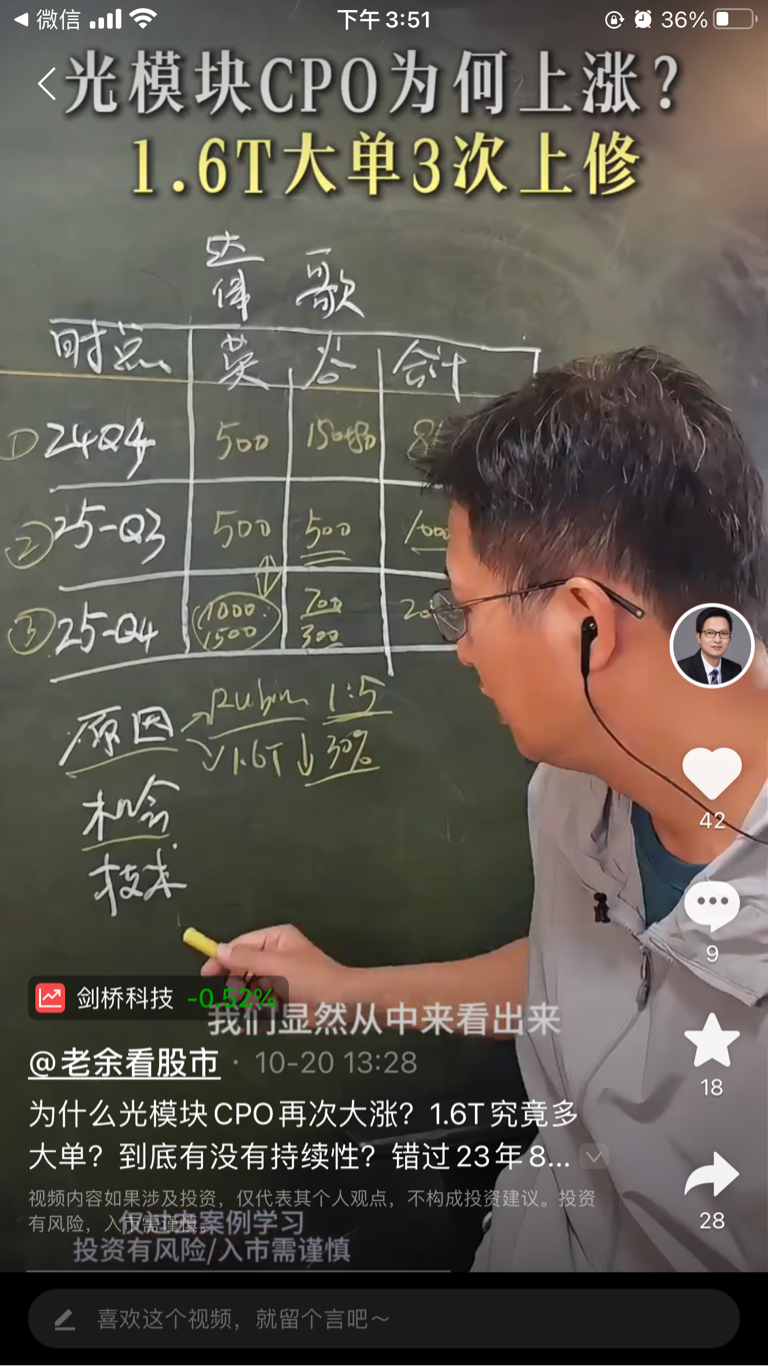 微信
下午 3:51
36%
光模块CPO为何上涨?
1.6T大单3次上修
达 歌
伟
时点 英 谷 会计
① 24Q4 500
② 25-Q3 500 500 1000
③ 25-Q4 1000 700
1500 300
原因 Rubin 1:5
1.6T ↓ 30%
机会
技术
剑桥科技 -0.52%
我们显然从中来看出来
@老余看股市 · 10-20 13:28
为什么光模块CPO再次大涨？1.6T究竟多
大单？到底有没有持续性？错过23年8...
视频内容如果涉及投资，仅代表其个人观点，不构成投资建议。投资
有风险，入市需谨慎。
仅过去案例学习
投资有风险/入市需谨慎
42
9
18
28
喜欢这个视频，就留个言吧～